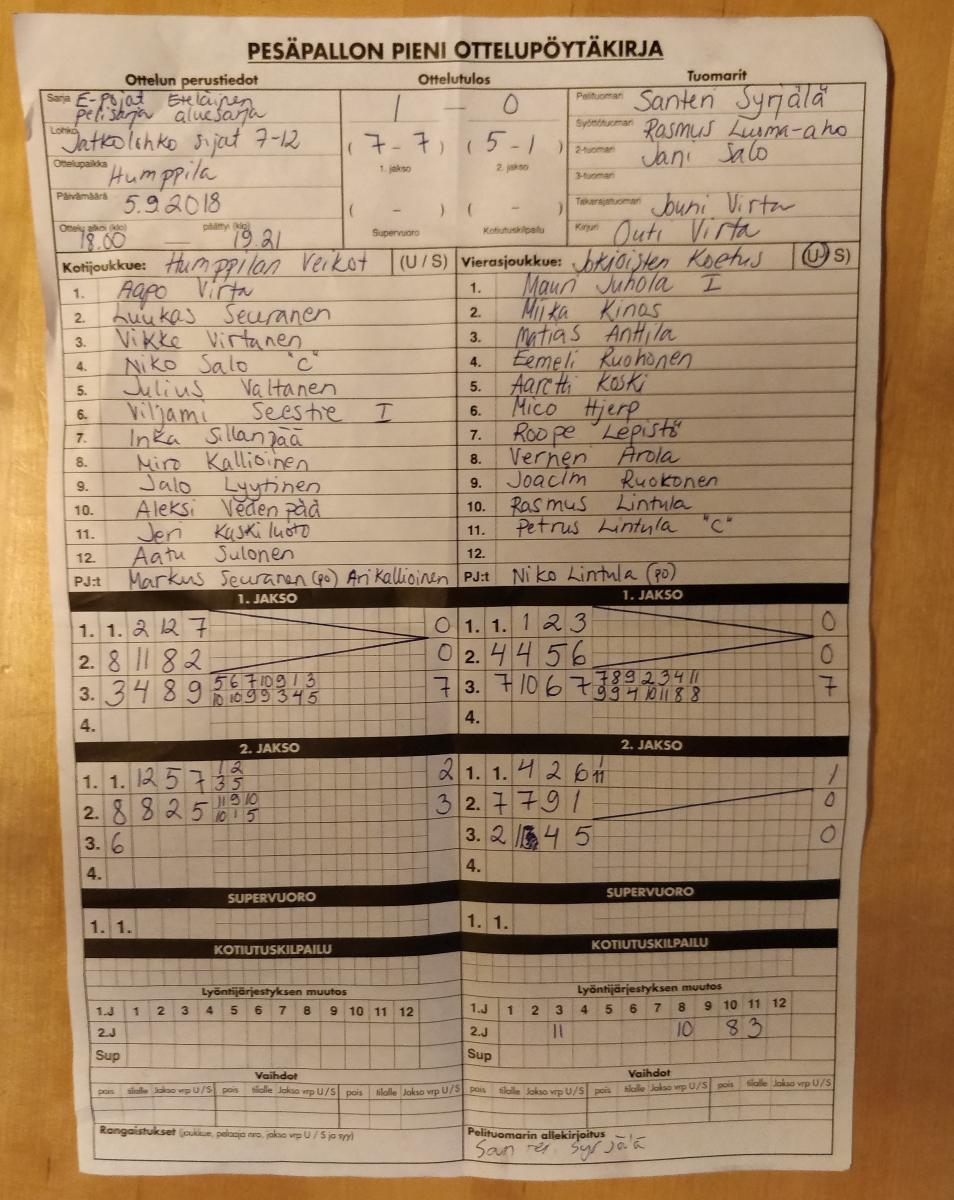 PESÄPALLON PIENI OTTELUPÖYTÄKIRJA
Ottelun perustiedot
Ottelutulos
Tuomarit
Sarja E-pojat Eteläinen
pelisarja aluesarja
Lohko Jatkolohko sijat 7-12
Ottelupaikka Humppila
Päivämäärä 5.9.2018
Ottelu alkoi (klo) päättyi (klo)
18.00 — 19.21
1 — 0
( 7 - 7 ) ( 5 - 1 )
1. jakso 2. jakso
( - ) ( - )
Supervuoro Kotiutuskilpailu
Pelituomari Santeri Syrjälä
Syöttötuomari Rasmus Luoma-aho
2-tuomari Jani Salo
3-tuomari
Takarajatuomari Jouni Virta
Kirjuri Outi Virta
Kotijoukkue: Humppilan Veikot (U / S)
1. Aapo Virta
2. Luukas Seuranen
3. Vikke Virtanen
4. Niko Salo "C"
5. Julius Valtanen
6. Viljami Seestie I
7. Inka Sillanpää
8. Miro Kallioinen
9. Jalo Lyytinen
10. Aleksi Vedenpää
11. Jeri Kaskiluoto
12. Aatu Sulonen
PJ:t Markus Seuranen (po) Ari Kallioinen
Vierasjoukkue: Jokioisten Koetus (U / S)
1. Mauri Juhola I
2. Miika Kinos
3. Matias Anttila
4. Eemeli Ruohonen
5. Aaretti Koski
6. Mico Hjerp
7. Roope Lepistö
8. Verneri Arola
9. Joacim Ruokonen
10. Rasmus Lintula
11. Petrus Lintula "C"
12.
PJ:t Niko Lintula (po)
1. JAKSO
1. 1. 2 12 7 0
2. 8 11 8 2 0
3. 3 4 8 9 5 6 7 10 9 1 3 7
10 10 9 9 3 4 5
4.
1. JAKSO
1. 1. 1 2 3 0
2. 4 4 5 6 0
3. 7 10 6 7 7 8 9 2 3 4 11 7
9 9 4 10 11 8 8
4.
2. JAKSO
1. 1. 12 5 7 1 2 2
3 5
2. 8 8 2 5 11 9 10 3
10 1 5
3. 6
4.
2. JAKSO
1. 1. 4 2 6 11 1
2. 7 7 9 1 0
3. 2 4 5 0
4.
SUPERVUORO
1. 1.
SUPERVUORO
1. 1.
KOTIUTUSKILPAILU
KOTIUTUSKILPAILU
Lyöntijärjestyksen muutos
1.J 1 2 3 4 5 6 7 8 9 10 11 12
2.J
Sup
Lyöntijärjestyksen muutos
1.J 1 2 3 4 5 6 7 8 9 10 11 12
2.J 11 10 8 3
Sup
Vaihdot
pois tilalle Jakso vrp U / S pois tilalle Jakso vrp U / S pois tilalle Jakso vrp U / S
Vaihdot
pois tilalle Jakso vrp U / S pois tilalle Jakso vrp U / S pois tilalle Jakso vrp U / S
Rangaistukset (joukkue, pelaaja nro, jakso vrp U / S ja syy)
Pelituomarin allekirjoitus
Santeri Syrjälä